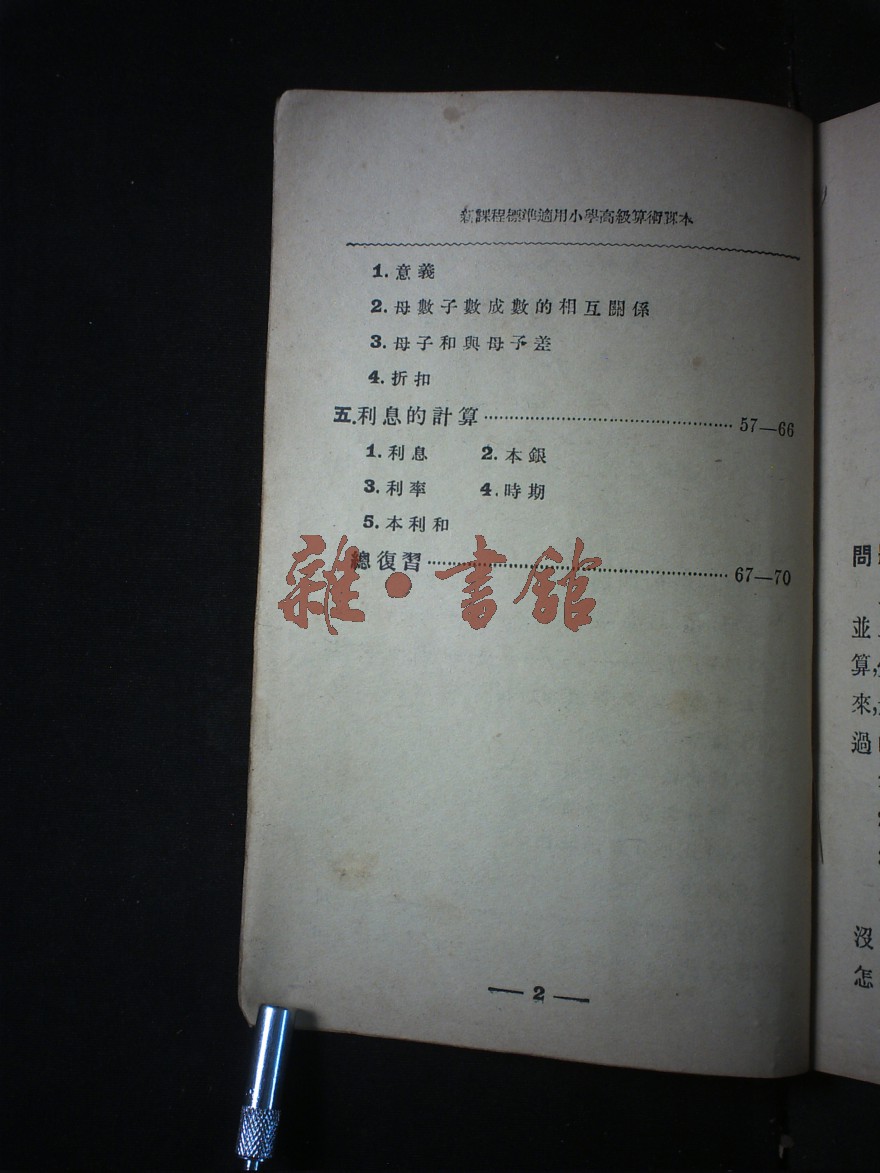 新課程標準適用小學高級算術課本
1. 意義
2. 母數子數成數的相互關係
3. 母子和與母子差
4. 折扣
五.利息的計算……………………………………57—66
1. 利息 2. 本銀
3. 利率 4. 時期
5. 本利和
總復習……………………………………………67—70
雜·書館
— 2 —
問
並
算,
來,
過
沒
怎